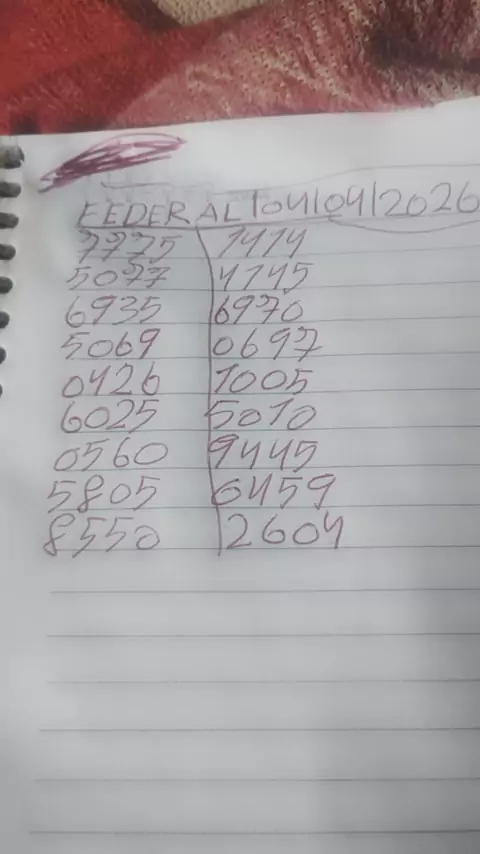 FEDERAL 04/04/2026
7775 1414
5077 4145
6935 6970
5069 0697
0426 1005
6025 5010
0560 9445
5805 6459
8550 2604